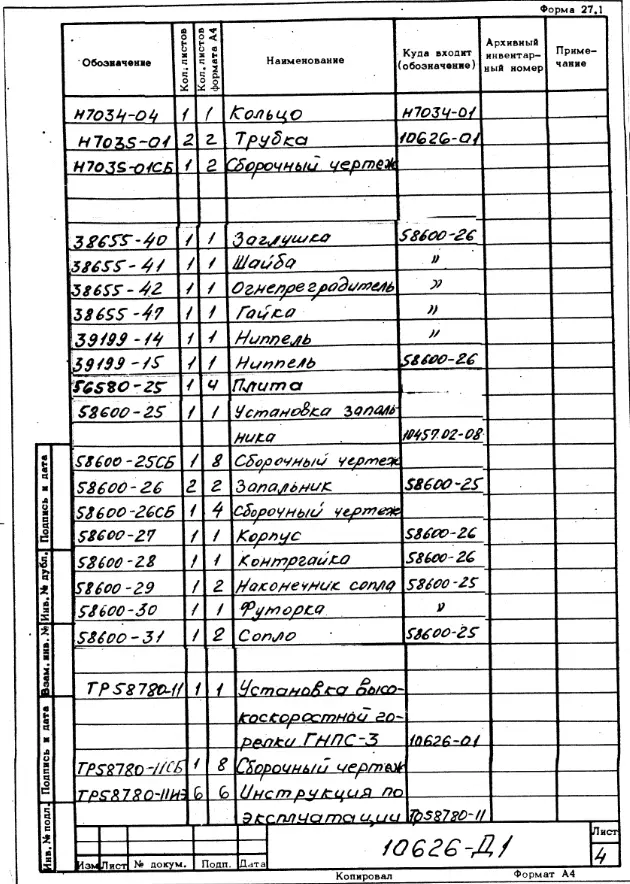 Форма 27.1
Обозначение Кол. листов Кол. листов формата А4 Наименование Куда входит (обозначение) Архивный инвентарный номер Примечание
Н7034-04 1 1 Кольцо Н7034-01
Н7035-01 2 2 Трубка 10626-01
Н7035-01СБ 1 2 Сборочный чертеж
38655-40 1 1 Заглушка 58600-26
38655-41 1 1 Шайба "
38655-42 1 1 Огнепреградитель "
38655-47 1 1 Гайка "
39199-14 1 1 Ниппель "
39199-15 1 1 Ниппель 58600-26
56580-25 1 4 Плита
58600-25 1 1 Установка запаль
ника 10457.02-08
58600-25СБ 1 8 Сборочный чертеж
58600-26 2 2 Запальник 58600-25
58600-26СБ 1 4 Сборочный чертеж
58600-27 1 1 Корпус 58600-26
58600-28 1 1 Контргайка 58600-26
58600-29 1 2 Наконечник сопла 58600-25
58600-30 1 1 Футорка "
58600-31 1 2 Сопло 58600-25
ТР58780-11 1 1 Установка высо-
коскоростной го-
релки ГНПС-3 10626-01
ТР58780-11СБ 1 8 Сборочный чертеж
ТР58780-11ИЭ 6 6 Инструкция по
эксплуатации ТР58780-11
Инв. № подл. Подпись и дата Взам. инв. № Инв. № дубл. Подпись и дата
Изм Лист № докум. Подп. Дата
10626-Д1
Лист
4
Копировал Формат А4